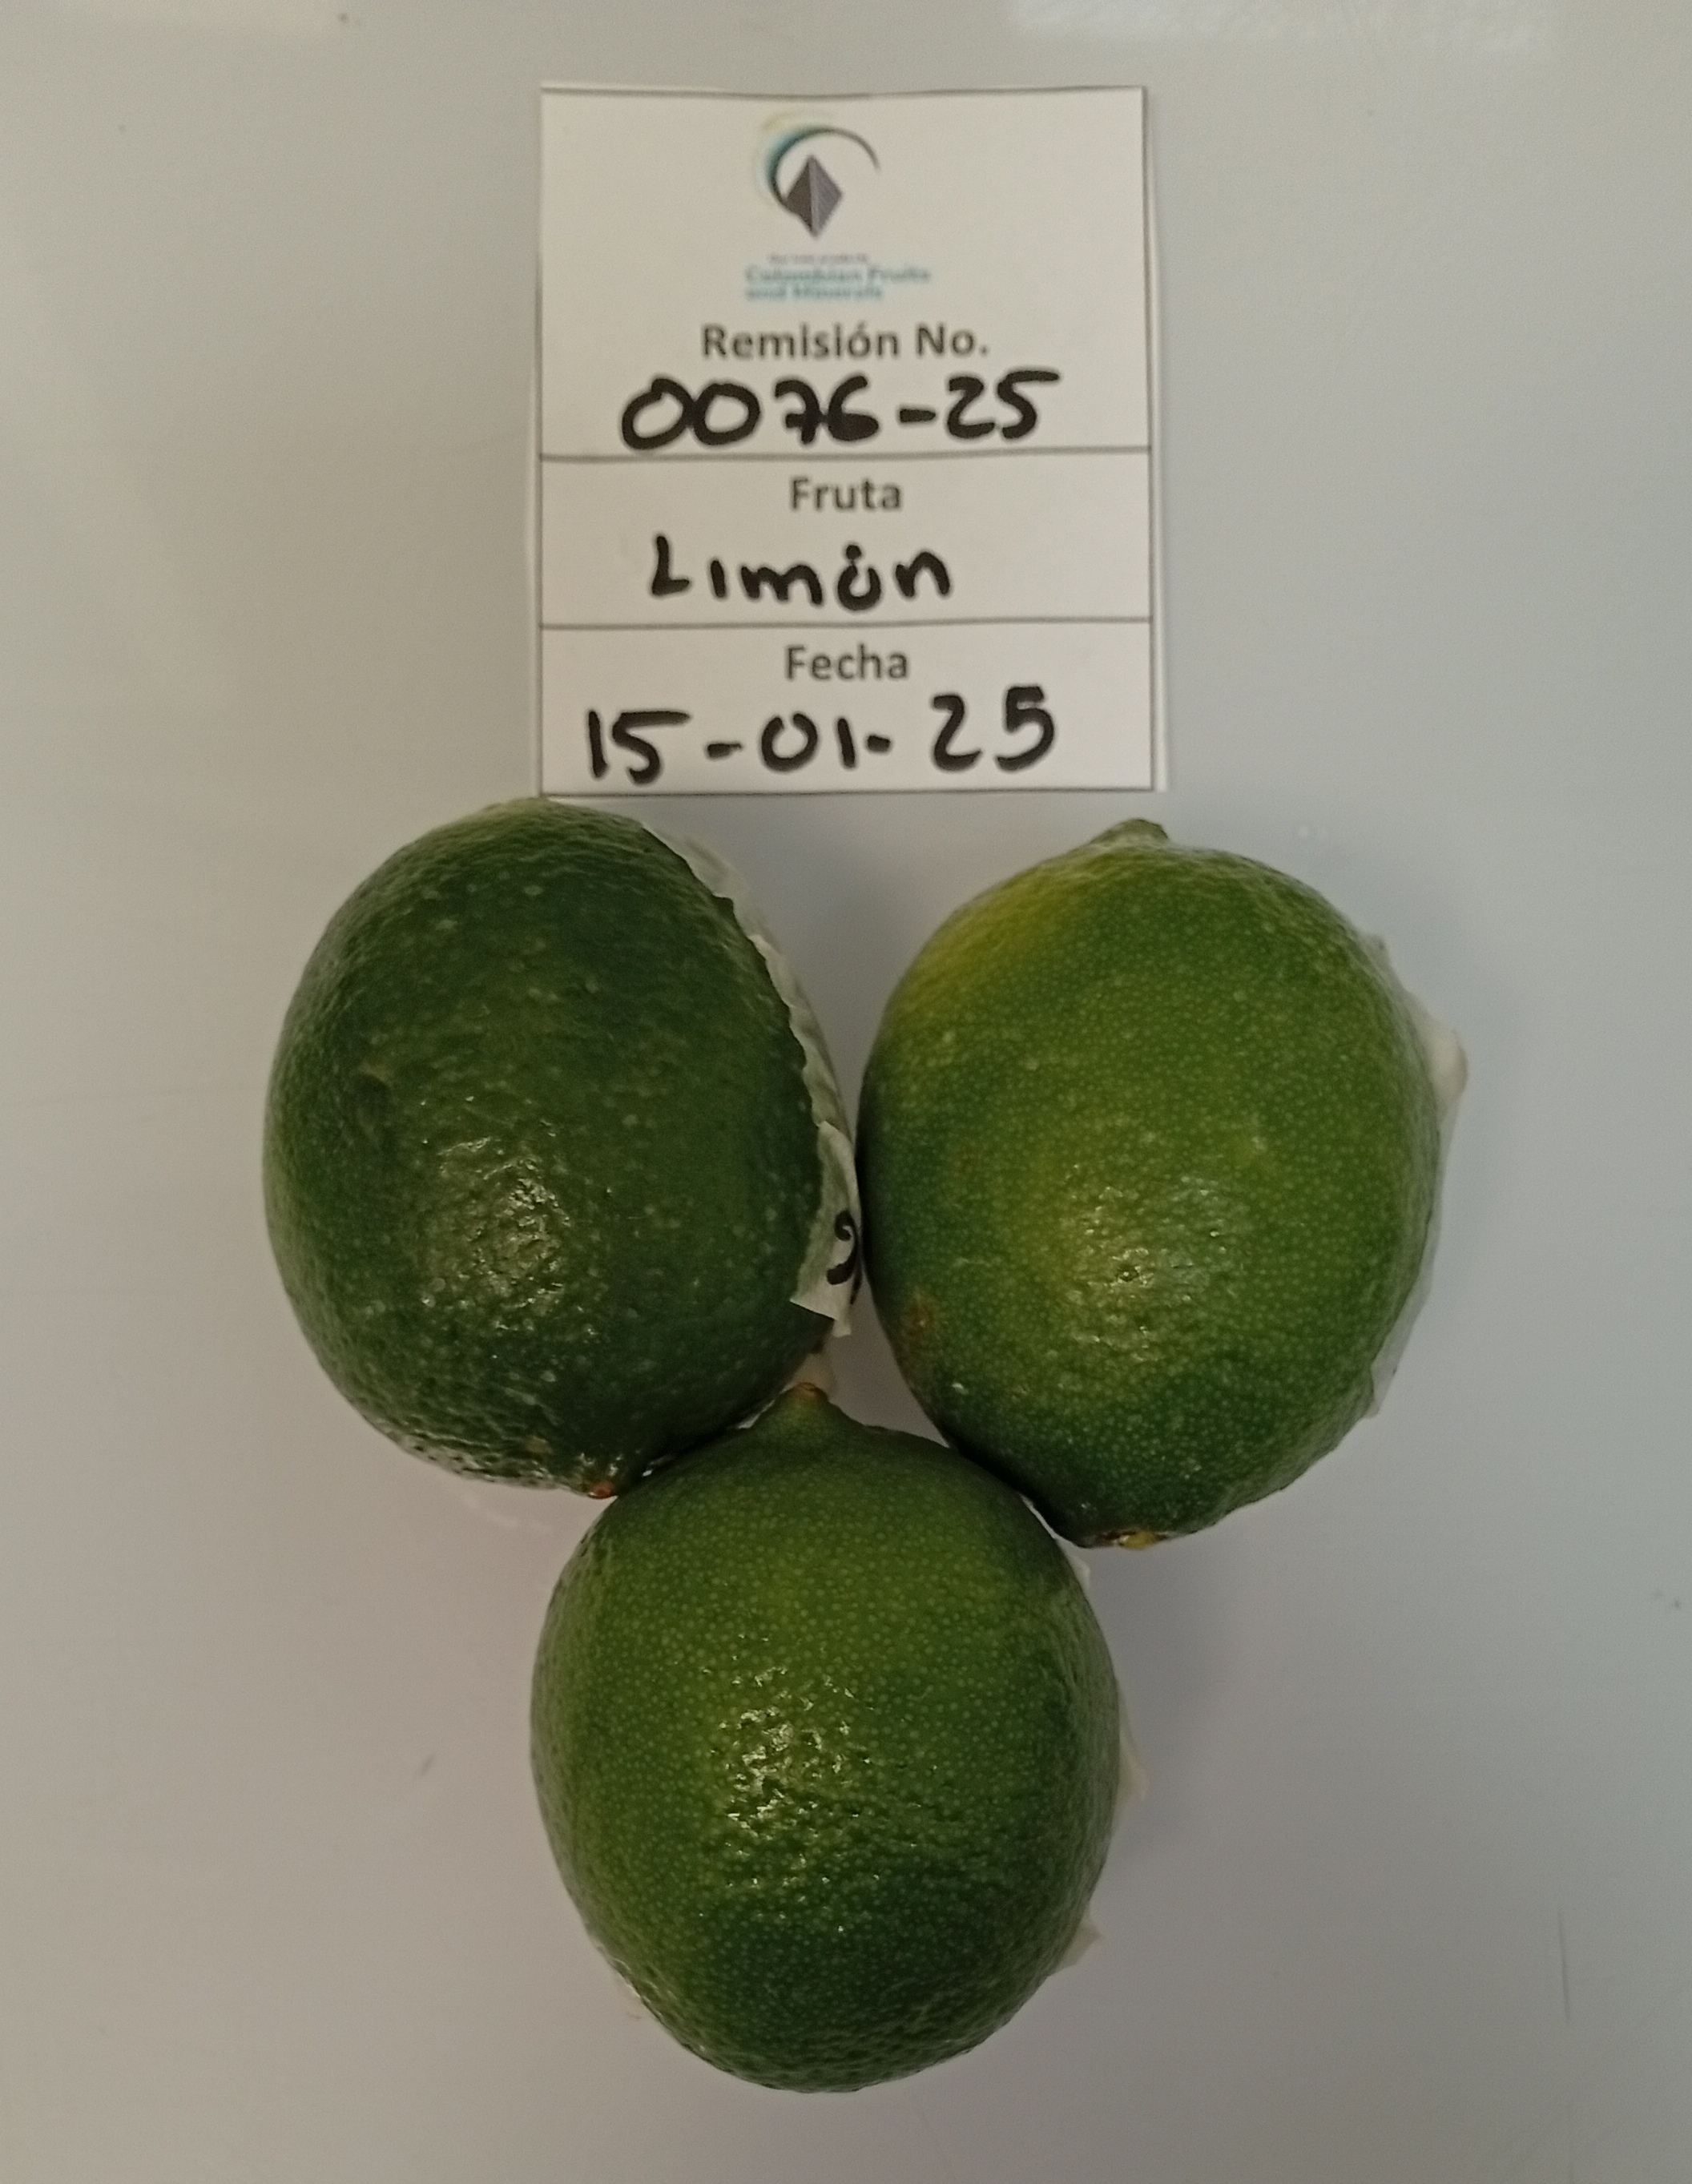 Colombian Fruits
and Minerals
Remisión No.
0076-25
Fruta
Limón
Fecha
15-01-25